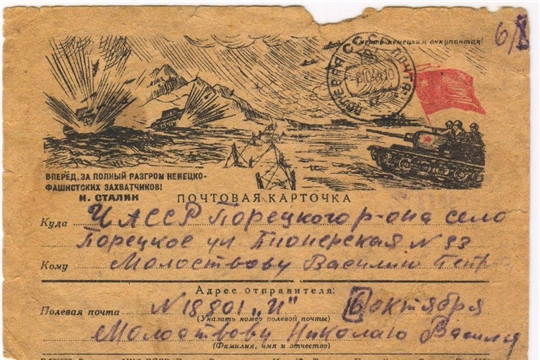 Смерть немецким оккупантам!
6/8
ПОЛЕВАЯ
СССР
ВПЕРЁД, ЗА ПОЛНЫЙ РАЗГРОМ НЕМЕЦКО-
ФАШИСТСКИХ ЗАХВАТЧИКОВ!
И. СТАЛИН
ПОЧТОВАЯ КАРТОЧКА
Куда ЧАССР Порецкого р-она село
Порецкое ул Пионерская N 33
Кому Молоствову Василию Петр
Адрес отправителя:
Полевая почта N 18801 „И" 6 октября
(Указать номер полевой почты)
Молоствову Николаю Василье
(Фамилия, имя и отчество)